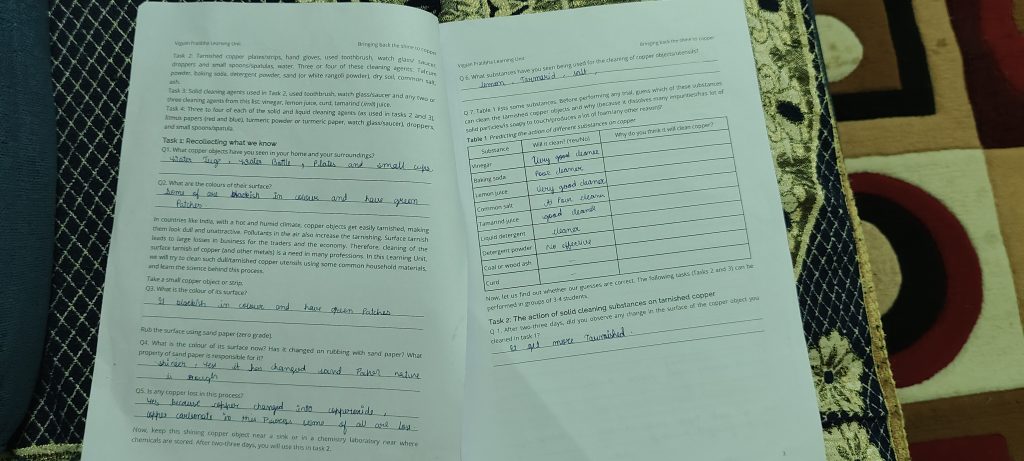 Vigyan Pratibha Learning Unit
Bringing back the shine to copper
Task 2: Tarnished copper plates/strips, hand gloves, used toothbrush, watch glass/ saucer,
droppers and small spoons/spatulas, water. Three or four of these cleaning agents: Talcum
powder, baking soda, detergent powder, sand (or white rangoli powder), dry soil, common salt,
ash.
Task 3: Solid cleaning agents used in Task 2, used toothbrush, watch glass/saucer and any two or
three cleaning agents from this list: vinegar, lemon juice, curd, tamarind (imli) juice.
Task 4: Three to four of each of the solid and liquid cleaning agents (as used in tasks 2 and 3),
litmus papers (red and blue), turmeric powder or turmeric paper, watch glass/saucer), droppers,
and small spoons/spatula.
Task 1: Recollecting what we know
Q1. What copper objects have you seen in your home and your surroundings?
water Jugs, water Bottle, Plates and small cups.
Q2. What are the colours of their surface?
Some of are blackish in colour and have green
Patches
In countries like India, with a hot and humid climate, copper objects get easily tarnished, making
them look dull and unattractive. Pollutants in the air also increase the tarnishing. Surface tarnish
leads to large losses in business for the traders and the economy. Therefore, cleaning of the
surface tarnish of copper (and other metals) is a need in many professions. In this Learning Unit,
we will try to clean such dull/tarnished copper utensils using some common household materials,
and learn the science behind this process.
Take a small copper object or strip.
Q3. What is the colour of its surface?
It blackish in colour and have green Patches
Rub the surface using sand paper (zero grade).
Q4. What is the colour of its surface now? Has it changed on rubbing with sand paper? What
property of sand paper is responsible for it?
shiner, yes it has changed sand Paper nature
is rough
Q5. Is any copper lost in this process?
yes because copper changed into
copper carbonate in this Process some of all are loss
Now, keep this shining copper object near a sink or in a chemistry laboratory near where
chemicals are stored. After two-three days, you will use this in task 2.
Vigyan Pratibha Learning Unit
Bringing back the shine to copper
Q 6. What substances have you seen being used for the cleaning of copper objects/utensils?
lemon, Tarmarid, salt,
Q 7. Table 1 lists some substances. Before performing any trial, guess which of these substances
can clean the tarnished copper objects and why (because it dissolves many impurities/has lot of
solid particles/is soapy to touch/produces a lot of foam/any other reason)?
Table 1: Predicting the action of different substances on copper
Substance
Will it clean? (Yes/No)
Why do you think it will clean copper?
Vinegar
Very good cleaner
Baking soda
Poor cleaner
Lemon juice
Very good cleaner
Common salt
Tamarind juice
good cleaner
Liquid detergent
cleaner
Detergent powder
No effective
Coal or wood ash
Curd
Now, let us find out whether our guesses are correct. The following tasks (Tasks 2 and 3) can be
performed in groups of 3-4 students.
Task 2: The action of solid cleaning substances on tarnished copper
Q 1. After two-three days, did you observe any change in the surface of the copper object you
cleaned in task 1?
It get more Taurnished.
3